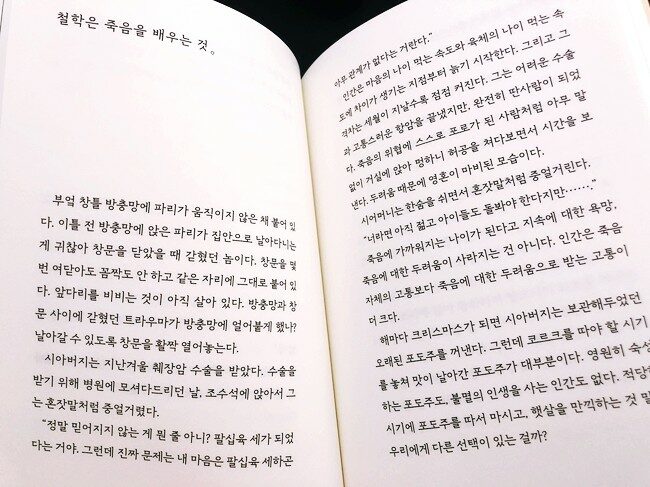 철학은 죽음을 배우는 것。
부엌 창틀 방충망에 파리가 움직이지 않은 채 붙어 있
다. 이틀 전 방충망에 앉은 파리가 집안으로 날아다니는
게 귀찮아 창문을 닫았을 때 갇혔던 놈이다. 창문을 몇
번 여닫아도 꼼짝도 안 하고 같은 자리에 그대로 붙어 있
다. 앞다리를 비비는 것이 아직 살아 있다. 방충망과 창
문 사이에 갇혔던 트라우마가 방충망에 얼어붙게 했나?
날아갈 수 있도록 창문을 활짝 열어놓는다.
시아버지는 지난겨울 췌장암 수술을 받았다. 수술을
받기 위해 병원에 모셔다드리던 날, 조수석에 앉아서 그
는 혼잣말처럼 중얼거렸다.
“정말 믿어지지 않는 게 뭔 줄 아니? 팔십육 세가 되었
다는 거야. 그런데 진짜 문제는 내 마음은 팔십육 세하곤
아무 관계가 없다는 거란다.”
인간은 마음의 나이 먹는 속도와 육체의 나이 먹는 속
도에 차이가 생기는 지점부터 늙기 시작한다. 그리고 그
격차는 세월이 지날수록 점점 커진다. 그는 어려운 수술
과 고통스러운 항암을 끝냈지만, 완전히 딴사람이 되었
다. 죽음의 위협에 스스로 포로가 된 사람처럼 아무 말
없이 거실에 앉아 멍하니 허공을 쳐다보면서 시간을 보
낸다. 두려움 때문에 영혼이 마비된 모습이다.
시어머니는 한숨을 쉬면서 혼잣말처럼 중얼거린다.
“너라면 아직 젊고 아이들도 돌봐야 한다지만…….”
죽음에 가까워지는 나이가 된다고 지속에 대한 욕망,
죽음에 대한 두려움이 사라지는 건 아니다. 인간은 죽음
자체의 고통보다 죽음에 대한 두려움으로 받는 고통이
더 크다.
해마다 크리스마스가 되면 시아버지는 보관해두었던
오래된 포도주를 꺼낸다. 그런데 코르크를 따야 할 시기
를 놓쳐 맛이 날아간 포도주가 대부분이다. 영원히 숙성
하는 포도주도, 불멸의 인생을 사는 인간도 없다. 적당한
시기에 포도주를 따서 마시고, 햇살을 만끽하는 것 말
우리에게 다른 선택이 있는 걸까?